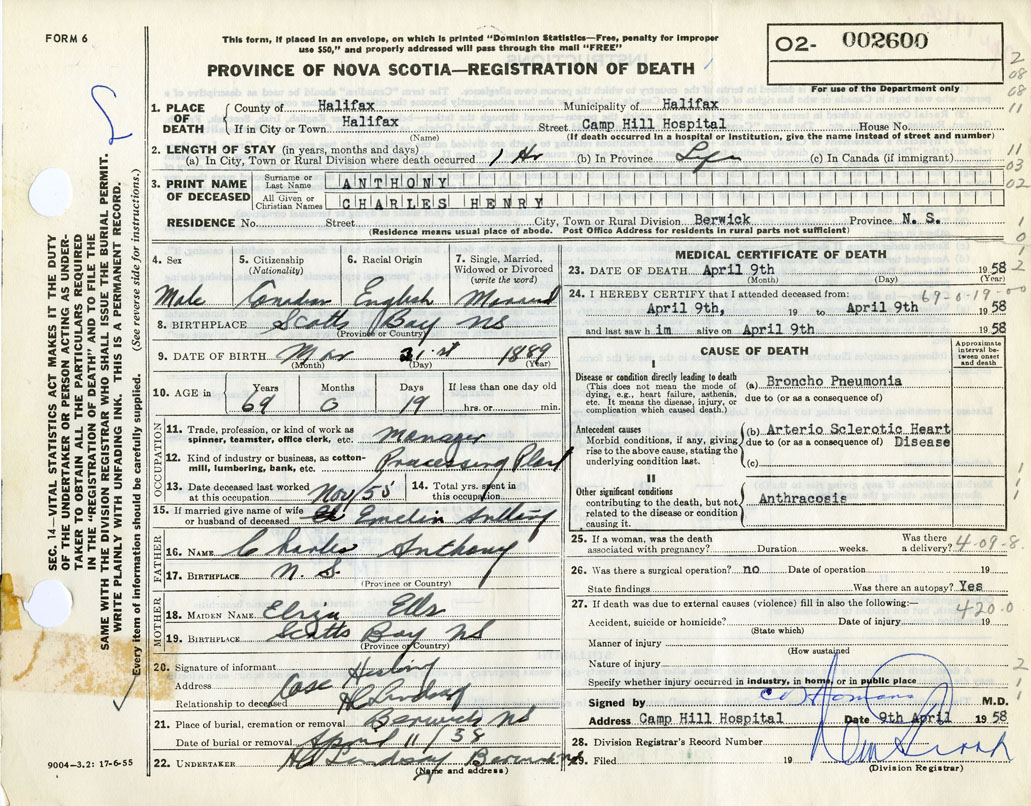 FORM 6
This form, if placed in an envelope, on which is printed "Dominion Statistics—Free, penalty for improper
use $50," and properly addressed will pass through the mail "FREE"
PROVINCE OF NOVA SCOTIA—REGISTRATION OF DEATH
02- 002600
For use of the Department only
SEC. 14—VITAL STATISTICS ACT MAKES IT THE DUTY
OF THE UNDERTAKER OR PERSON ACTING AS UNDER-
TAKER TO OBTAIN ALL THE PARTICULARS REQUIRED
IN THE "REGISTRATION OF DEATH" AND TO FILE THE
SAME WITH THE DIVISION REGISTRAR WHO SHALL ISSUE THE BURIAL PERMIT.
WRITE PLAINLY WITH UNFADING INK. THIS IS A PERMANENT RECORD.
Every item of information should be carefully supplied. (See reverse side for instructions.)
1. PLACE OF DEATH
County of Halifax Municipality of Halifax
If in City or Town Halifax Street Camp Hill Hospital House No.
(Name) (If death occurred in a hospital or Institution, give the name Instead of street and number)
2. LENGTH OF STAY (in years, months and days)
(a) In City, Town or Rural Division where death occurred 1 Hr (b) In Province Life (c) In Canada (if immigrant)
3. PRINT NAME OF DECEASED
Surname or Last Name ANTHONY
All Given or Christian Names CHARLES HENRY
RESIDENCE No. Street City, Town or Rural Division Berwick Province N. S.
(Residence means usual place of abode. Post Office Address for residents in rural parts not sufficient)
2
08
68
11
11
03
02
1
0
1
2
4. Sex 5. Citizenship (Nationality) 6. Racial Origin 7. Single, Married, Widowed or Divorced (write the word)
Male Canadian English Married
8. BIRTHPLACE Scotts Bay NS
(Province or Country)
9. DATE OF BIRTH Mar 21st 1889
(Month) (Day) (Year)
10. AGE in Years Months Days If less than one day old
69 0 19 hrs. or min.
OCCUPATION
11. Trade, profession or kind of work as spinner, teamster, office clerk, etc. Manager
12. Kind of industry or business, as cotton-mill, lumbering, bank, etc. Processing Plant
13. Date deceased last worked at this occupation Nov/55 14. Total yrs. spent in this occupation
15. If married give name of wife or husband of deceased Anthony
FATHER
16. NAME Charles Anthony
17. BIRTHPLACE N.S.
(Province or Country)
MOTHER
18. MAIDEN NAME Eliza Ells
19. BIRTHPLACE Scotts Bay NS
(Province or Country)
20. Signature of informant
Address
Relationship to deceased H C Lindsay
21. Place of burial, cremation or removal Berwick NS
Date of burial or removal April 11/58
22. UNDERTAKER H C Lindsay Berwick NS
(Name and address)
9004—3.2: 17-6-55
MEDICAL CERTIFICATE OF DEATH
23. DATE OF DEATH April 9th 1958
(Month) (Day) (Year)
69-0-19-00
24. I HEREBY CERTIFY that I attended deceased from:
April 9th, 19 to April 9th 1958
and last saw him alive on April 9th 1958
CAUSE OF DEATH
Approximate interval between onset and death
I
Disease or condition directly leading to death
(This does not mean the mode of dying, e.g., heart failure, asthenia, etc. It means the disease, injury, or complication which caused death.)
(a) Broncho Pneumonia
due to (or as a consequence of)
Antecedent causes
Morbid conditions, if any, giving rise to the above cause, stating the underlying condition last.
(b) Arterio Sclerotic Heart
due to (or as a consequence of) Disease
(c)
II
Other significant conditions
contributing to the death, but not related to the disease or condition causing it.
Anthracosis
1
1
1
25. If a woman, was the death associated with pregnancy? Duration weeks. Was there a delivery?
4-09-8.
26. Was there a surgical operation? no Date of operation 19
State findings Was there an autopsy? Yes
27. If death was due to external causes (violence) fill in also the following:
420.0
Accident, suicide or homicide? Date of injury 19
(State which)
Manner of injury
(How sustained
Nature of injury
Specify whether injury occurred in industry, in home, or in public place
2
1
1
Signed by M.D.
Address Camp Hill Hospital Date 9th April 1958
28. Division Registrar's Record Number
29. Filed 19
(Division Registrar)